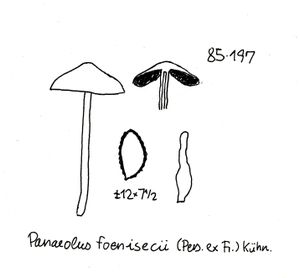 85-197
±12×7½
Panaeolus foenisecii (Pers. ex Fr.) Kühn.